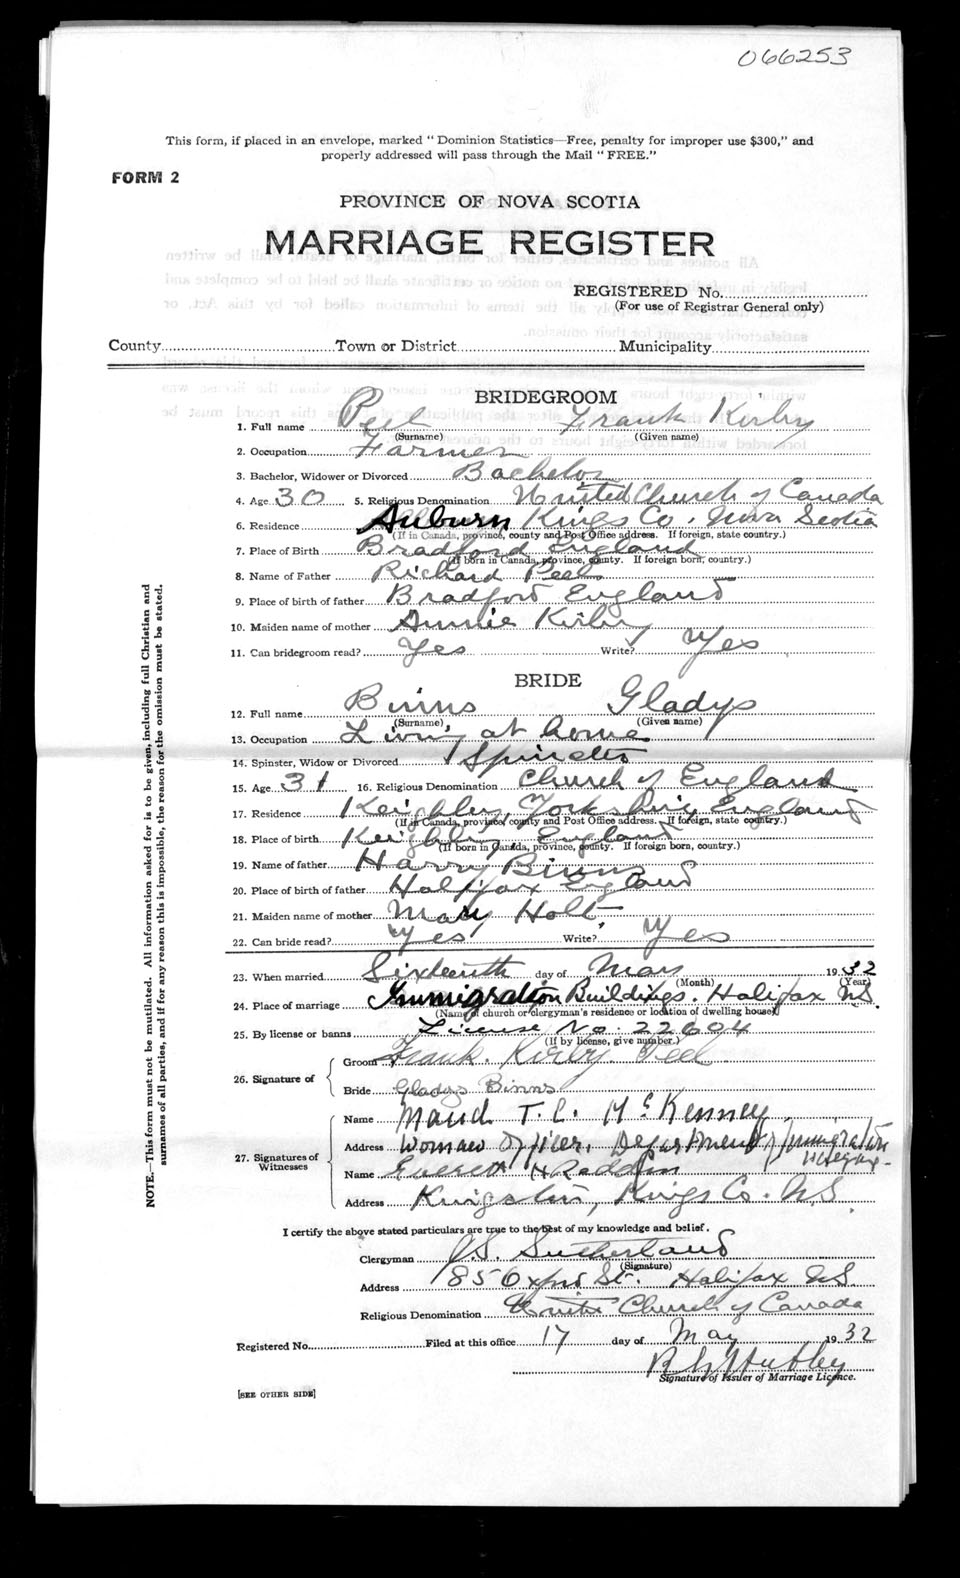 066253
This form, if placed in an envelope, marked " Dominion Statistics—Free, penalty for improper use $300," and
properly addressed will pass through the Mail " FREE."
FORM 2
PROVINCE OF NOVA SCOTIA
MARRIAGE REGISTER
REGISTERED No.
(For use of Registrar General only)
County Town or District Municipality
BRIDEGROOM
1. Full name Peel Frank Kirby
(Surname) (Given name)
2. Occupation Farmer
3. Bachelor, Widower or Divorced Bachelor
4. Age 30 5. Religious Denomination United Church of Canada
6. Residence Auburn Kings Co. Nova Scotia
(If in Canada, province, county and Post Office address. If foreign, state country.)
7. Place of Birth Bradford England
(If born in Canada, province, county. If foreign born, country.)
8. Name of Father Richard Peel
9. Place of birth of father Bradford England
10. Maiden name of mother Annie Kirby
11. Can bridegroom read? Yes Write? Yes
BRIDE
12. Full name Binns Gladys
(Surname) (Given name)
13. Occupation Living at home
14. Spinster, Widow or Divorced Spinster
15. Age 31 16. Religious Denomination Church of England
17. Residence Keighley, Yorkshire England
(If in Canada, province, county and Post Office address. If foreign, state country.)
18. Place of birth Keighley England
(If born in Canada, province, county. If foreign born, country.)
19. Name of father Harry Binns
20. Place of birth of father Halifax England
21. Maiden name of mother Mary Holt
22. Can bride read? Yes Write? Yes
23. When married Sixteenth day of May 1932
(Month) (Year)
24. Place of marriage Immigration Buildings. Halifax N.S.
(Name of church or clergyman's residence or location of dwelling house)
25. By license or banns License No. 22604
(If by license, give number.)
26. Signature of
Groom Frank. Kirby. Peel
Bride Gladys Binns
27. Signatures of Witnesses
Name Maud T. C. McKenney
Address Woman Officer, Department of Immigration Halifax
Name Everett H Reddin
Address Kingston, Kings Co. N.S.
I certify the above stated particulars are true to the best of my knowledge and belief.
Clergyman J.S. Sutherland
(Signature)
Address 856 St. Halifax N.S.
Religious Denomination United Church of Canada
Registered No. Filed at this office 17 day of May 1932
Signature of Issuer of Marriage Licence.
[SEE OTHER SIDE]
NOTE.—This form must not be mutilated. All information asked for is to be given, including full Christian and
surnames of all parties, and if for any reason this is impossible, the reason for the omission must be stated.